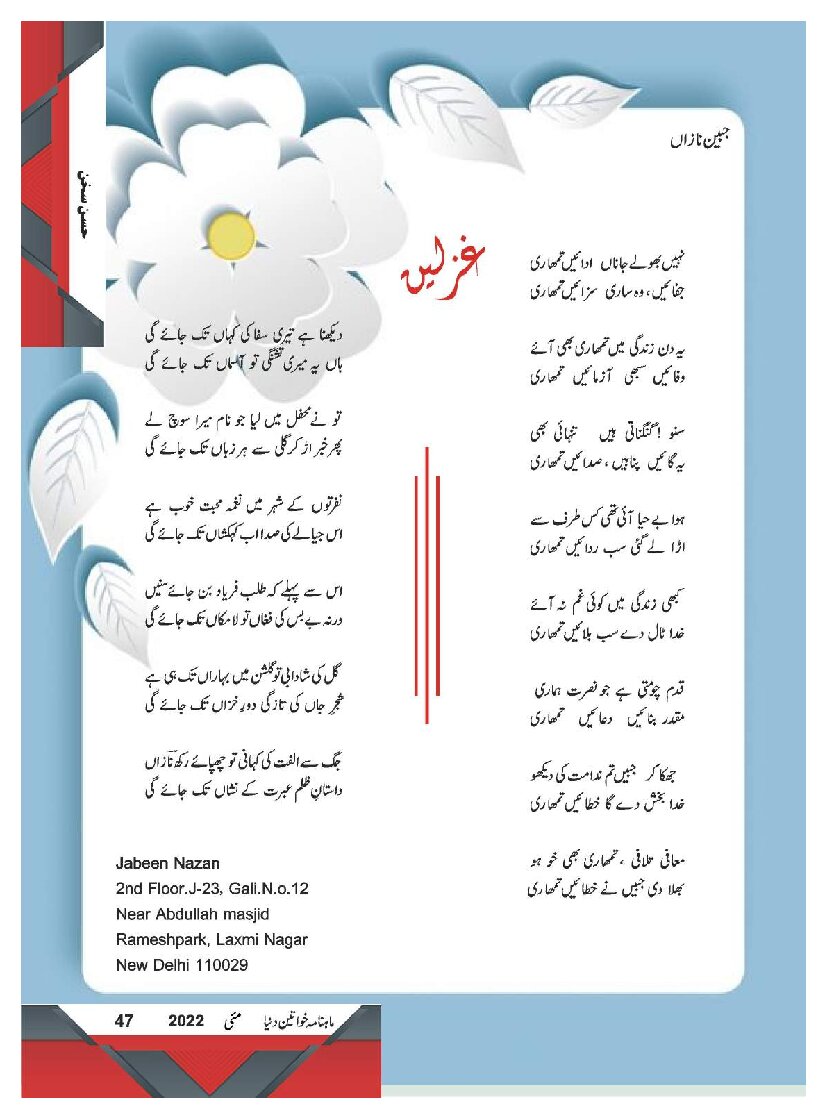 حسن سخن
جبین نازاں
غزلیں
نہیں بھولے جاناں ادائیں تمھاری
جفائیں، وہ ساری سزائیں تمھاری
یہ دن زندگی میں تمھاری بھی آئے
وفائیں سبھی آزمائیں تمھاری
سنو ! گنگناتی ہیں تنہائی بھی
یہ گائیں پناہیں ، صدائیں تمھاری
ہوا بے حیا آئی تھی کس طرف سے
اڑا لے گئی سب ردائیں تمھاری
کبھی زندگی میں کوئی غم نہ آئے
خدا ٹال دے سب بلائیں تمھاری
قدم چومتی ہے جو نصرت ہماری
مقدر بنائیں دعائیں تمھاری
جھکا کر جبیں تم ندامت کی دیکھو
خدا بخش دے گا خطائیں تمھاری
معافی تلافی ، تمھاری بھی خو ہو
بھلا دی جبیں نے خطائیں تمھاری
دیکھنا ہے تیری سفاکی کہاں تک جائے گی
ہاں یہ میری تشنگی تو آسماں تک جائے گی
تو نے محفل میں لیا جو نام میرا سوچ لے
پھر خبر اڑ کر گلی سے ہر زباں تک جائے گی
نفرتوں کے شہر میں نغمہ محبت خوب ہے
اس جیالے کی صدا اب کہکشاں تک جائے گی
اس سے پہلے کہ طلب فریاد بن جائے سنیں
ورنہ بے بس کی فغاں تو لامکاں تک جائے گی
گل کی شادابی تو گلشن میں بہاراں تک ہی ہے
شجرِ جاں کی تازگی دورِ خزاں تک جائے گی
جگ سے الفت کی کہانی تو چھپائے رکھ نازاں
داستانِ ظلم عبرت کے نشاں تک جائے گی
Jabeen Nazan
2nd Floor.J-23, Gali.N.o.12
Near Abdullah masjid
Rameshpark, Laxmi Nagar
New Delhi 110029
ماہنامہ خواتین دنیا مئی 2022 47